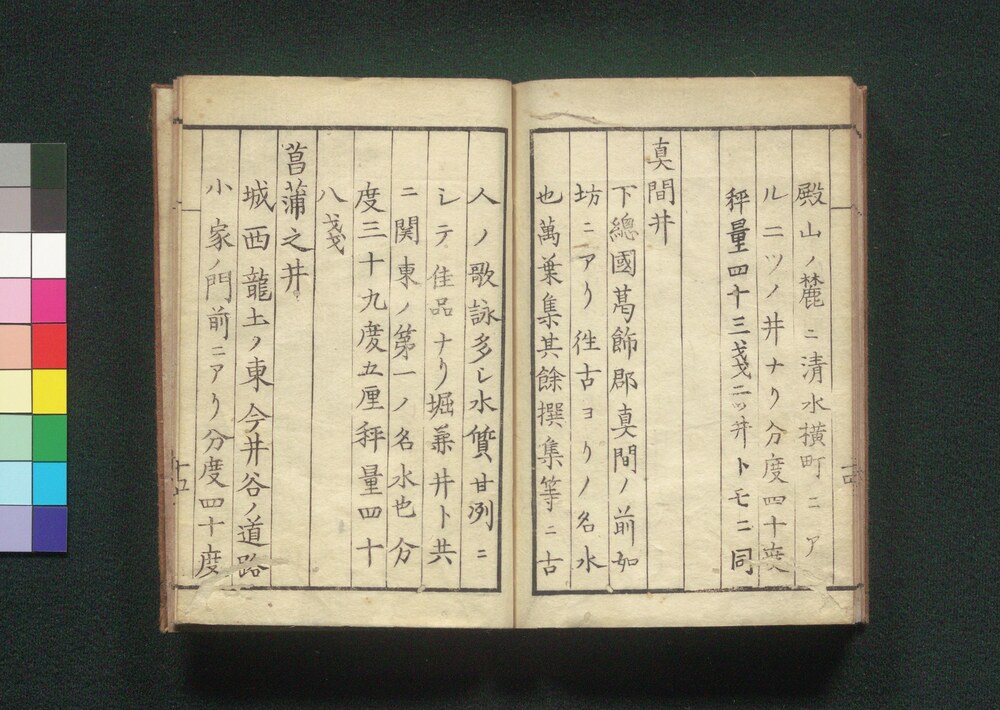 殿山ノ麓ニ清水横町ニア
ルニツノ井ナリ分度四十度
秤量四十三戔二ッ井トモニ同
真間井
下總國葛飾郡真間ノ前如
坊ニアリ徃古ヨリノ名水
也萬葉集其餘撰集等ニ古
十四
人ノ歌詠多シ水質甘冽ニ
シテ佳品ナリ堀兼井ト共
ニ関東ノ第一ノ名水也分
度三十九度五厘秤量四十
八戔
菖蒲之井
城西龍土ノ東今井谷ノ道路
小家ノ門前ニアリ分度四十度
十五